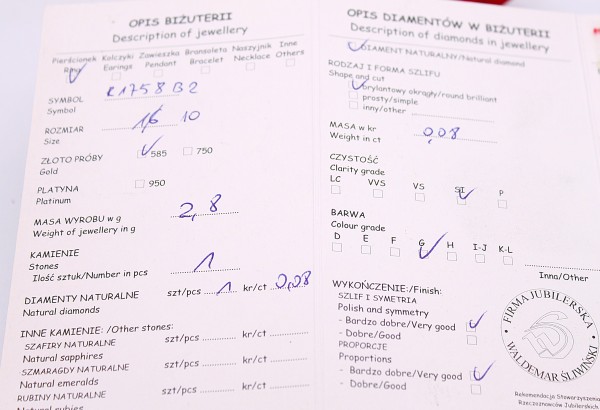 OPIS BIŻUTERII
Description of jewellery
Pierścionek Kolczyki Zawieszka Bransoleta Naszyjnik Inne
Ring Earings Pendant Bracelet Necklace Others
SYMBOL
Symbol
ROZMIAR 16 10
Size
ZŁOTO PRÓBY 585 750
Gold
PLATYNA 950
Platinum
MASA WYROBU w g 2,8
Weight of jewellery in g
KAMIENIE
Stones 1
Ilość sztuk/Number in pcs
DIAMENTY NATURALNE szt/pcs 1 kr/ct 0,08
Natural diamonds
INNE KAMIENIE: /Other stones:
SZAFIRY NATURALNE szt/pcs kr/ct
Natural sapphires
SZMARAGDY NATURALNE szt/pcs kr/ct
Natural emeralds
RUBINY NATURALNE szt/pcs kr/ct
Natural rubies
OPIS DIAMENTÓW W BIŻUTERII
Description of diamonds in jewellery
DIAMENT NATURALNY/Natural diamond
RODZAJ I FORMA SZLIFU
Shape and cut
brylantowy okrągły/round brilliant
prosty/simple
inny/other
MASA w kr 0,08
Weight in ct
CZYSTOŚĆ
Clarity grade
LC VVS VS SI P
BARWA
Colour grade
D E F G H I-J K-L
Inna/Other
WYKOŃCZENIE:/Finish:
SZLIF I SYMETRIA
Polish and symmetry
- Bardzo dobre/Very good
- Dobre/Good
PROPORCJE
Proportions
- Bardzo dobre/Very good
- Dobre/Good
FIRMA JUBILERSKA
WALDEMAR ŚLIWIŃSKI
Rekomendacja Stowarzyszenia
Rzeczoznawców Jubilerskich